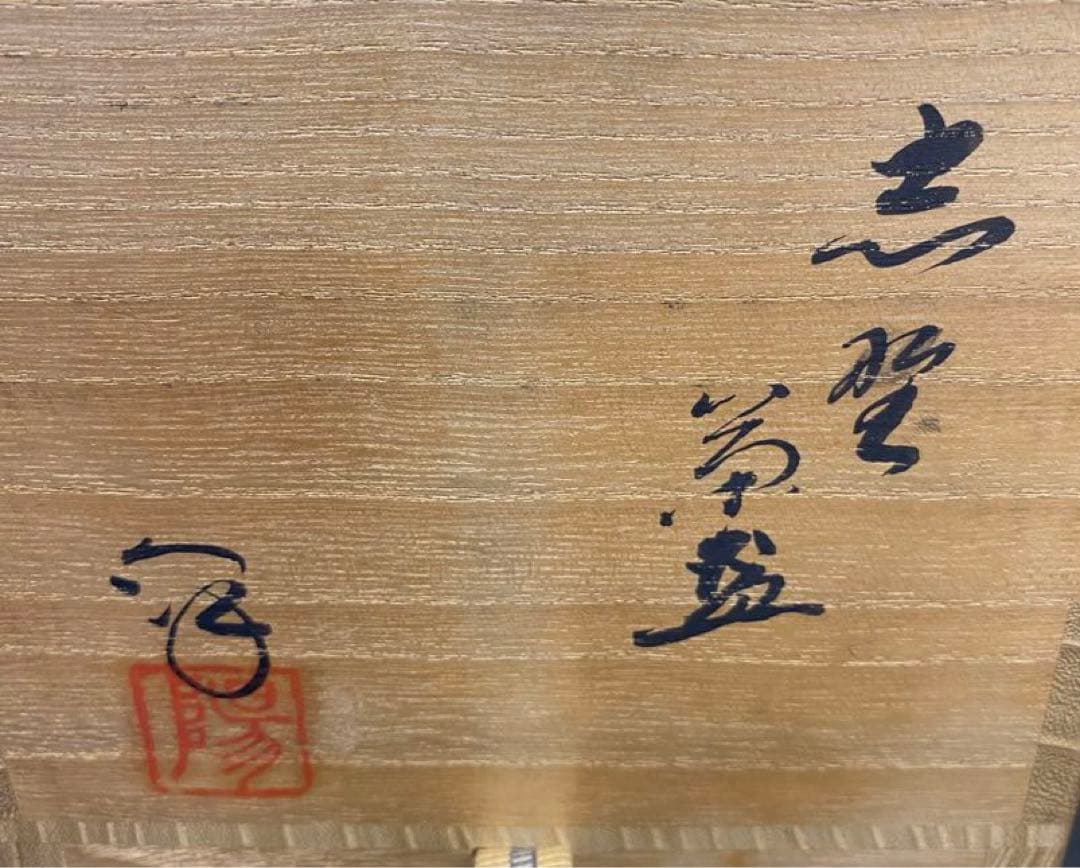 志野
茶盌
陽